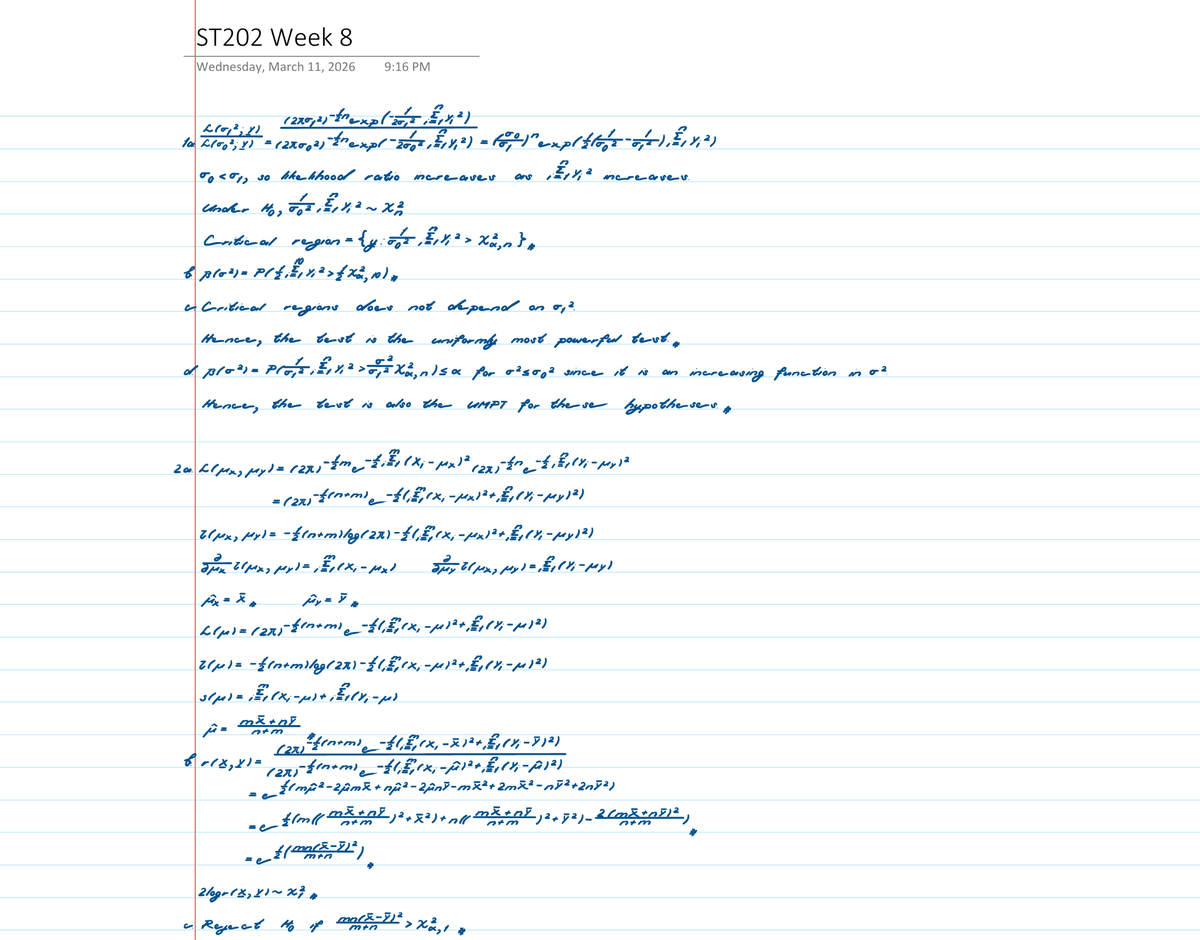 ST202 Week 8
Wednesday, March 11, 2026 9:16 PM
1a L(σ₁²; y)/L(σ₀²; y) = (2πσ₁²)^(-½n) exp(-1/(2σ₁²) Σᵢ₌₁ⁿ Yᵢ²) / (2πσ₀²)^(-½n) exp(-1/(2σ₀²) Σᵢ₌₁ⁿ Yᵢ²) = (σ₀/σ₁)ⁿ exp(½(1/σ₀² - 1/σ₁²) Σᵢ₌₁ⁿ Yᵢ²)
σ₀ < σ₁, so likelihood ratio increases as Σᵢ₌₁ⁿ Yᵢ² increases.
Under H₀, 1/σ₀² Σᵢ₌₁ⁿ Yᵢ² ~ χ²ₙ
Critical region = {y: 1/σ₀² Σᵢ₌₁ⁿ Yᵢ² > χ²_α,n} //
b β(σ²) = P(½ Σᵢ₌₁¹⁰ Yᵢ² > ½ χ²_α,10) //
c Critical regions does not depend on σ₁².
Hence, the test is the uniformly most powerful test. //
d β(σ²) = P(1/σ₁² Σᵢ₌₁ⁿ Yᵢ² > σ²/σ₁² χ²_α,n) ≤ α for σ² ≤ σ₀² since it is an increasing function in σ²
Hence, the test is also the UMPT for these hypotheses //
2a L(μx, μy) = (2π)^(-½m) e^(-½ Σᵢ₌₁ᵐ (Xᵢ - μx)²) (2π)^(-½n) e^(-½ Σᵢ₌₁ⁿ (Yᵢ - μy)²)
= (2π)^(-½(n+m)) e^(-½(Σᵢ₌₁ᵐ (Xᵢ - μx)² + Σᵢ₌₁ⁿ (Yᵢ - μy)²))
l(μx, μy) = -½(n+m)log(2π) - ½(Σᵢ₌₁ᵐ (Xᵢ - μx)² + Σᵢ₌₁ⁿ (Yᵢ - μy)²)
∂/∂μx l(μx, μy) = Σᵢ₌₁ᵐ (Xᵢ - μx) ∂/∂μy l(μx, μy) = Σᵢ₌₁ⁿ (Yᵢ - μy)
μ̂x = X̄ // μ̂y = Ȳ //
L(μ) = (2π)^(-½(n+m)) e^(-½(Σᵢ₌₁ᵐ (Xᵢ - μ)² + Σᵢ₌₁ⁿ (Yᵢ - μ)²))
l(μ) = -½(n+m)log(2π) - ½(Σᵢ₌₁ᵐ (Xᵢ - μ)² + Σᵢ₌₁ⁿ (Yᵢ - μ)²)
s(μ) = Σᵢ₌₁ᵐ (Xᵢ - μ) + Σᵢ₌₁ⁿ (Yᵢ - μ)
μ̂ = (mX̄ + nȲ)/(n+m) //
b r(X, Y) = (2π)^(-½(n+m)) e^(-½(Σᵢ₌₁ᵐ (Xᵢ - X̄)² + Σᵢ₌₁ⁿ (Yᵢ - Ȳ)²)) / (2π)^(-½(n+m)) e^(-½(Σᵢ₌₁ᵐ (Xᵢ - μ̂)² + Σᵢ₌₁ⁿ (Yᵢ - μ̂)²))
= e^(½(mμ̂² - 2μ̂mX̄ + nμ̂² - 2μ̂nȲ - mX̄² + 2mX̄² - nȲ² + 2nȲ²))
= e^(½(m(((mX̄ + nȲ)/(n+m))² + X̄²) + n(((mX̄ + nȲ)/(n+m))² + Ȳ²) - 2(mX̄ + nȲ)²/(n+m))) //
= e^(½(mn(X̄ - Ȳ)²/(m+n))) //
2logr(X, Y) ~ χ²₁ //
c Reject H₀ if mn(X̄ - Ȳ)²/(m+n) > χ²_α,1 //